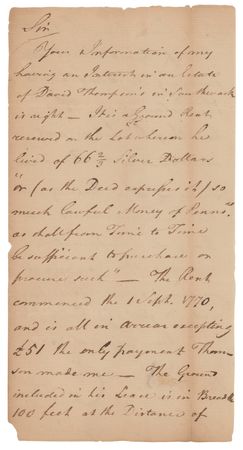 Sir
Your Information of my
having an Interest in an Estate
of David Thompson's in Southwark
is right — It is a Ground Rent
reserved on the Lot whereon he
lived of 66 2/3 Silver Dollars
"or (as the Deed expresses it) so
much lawful Money of Penna.
as shall from Time to Time
be sufficient to purchase or
procure such" — The Rent
commenced the 1 Sept. 1770,
and is all in Arrear excepting
£51 the only payment Thom-
son made me — The Ground
included in his Lease is in Breadth
100 feet at the Distance of